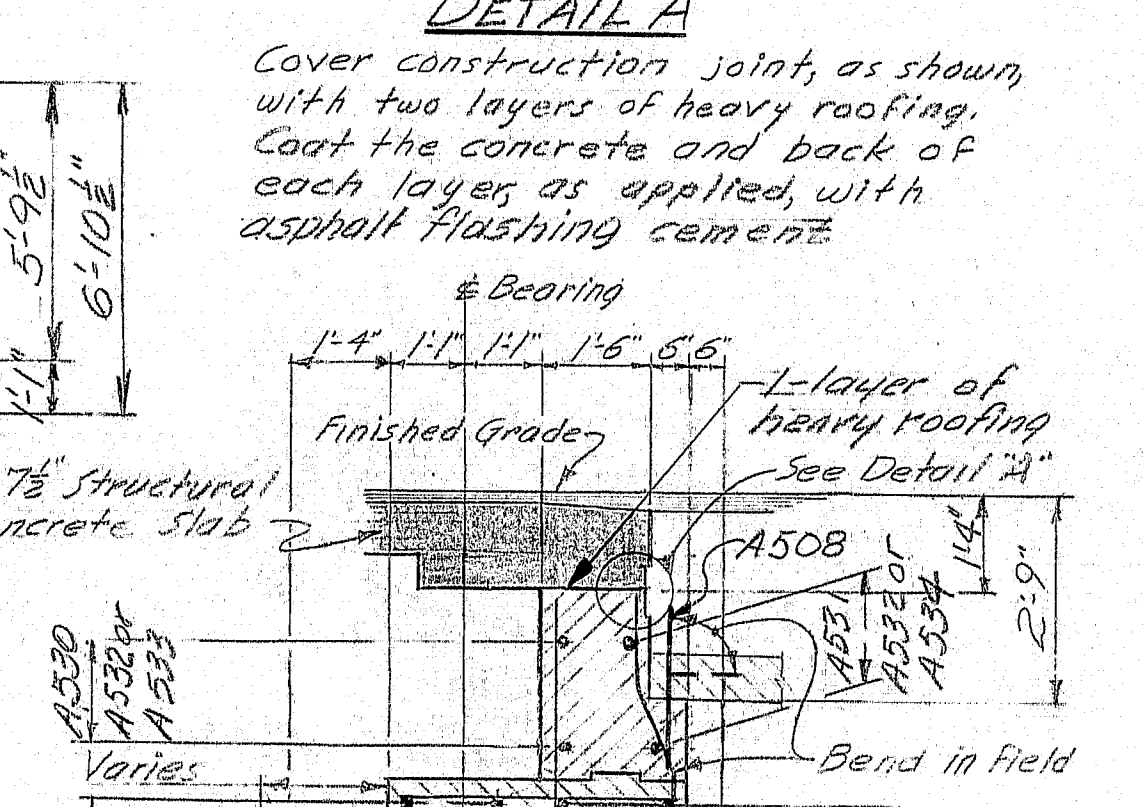 DETAIL A
Cover construction joint, as shown,
with two layers of heavy roofing.
Coat the concrete and back of
each layer, as applied, with
asphalt flashing cement
5'-9½"
6'-10½"
1'-1"
℄ Bearing
1'-4" 1'-1" 1'-1" 1'-6" 6" 6"
1-layer of
heavy roofing
Finished Grade
See Detail "A"
7½" Structural
ncrete Slab
A508
1'4"
2'-9"
A531
A532 or
A534
A530
A532 or
A533
Varies
Bend in field